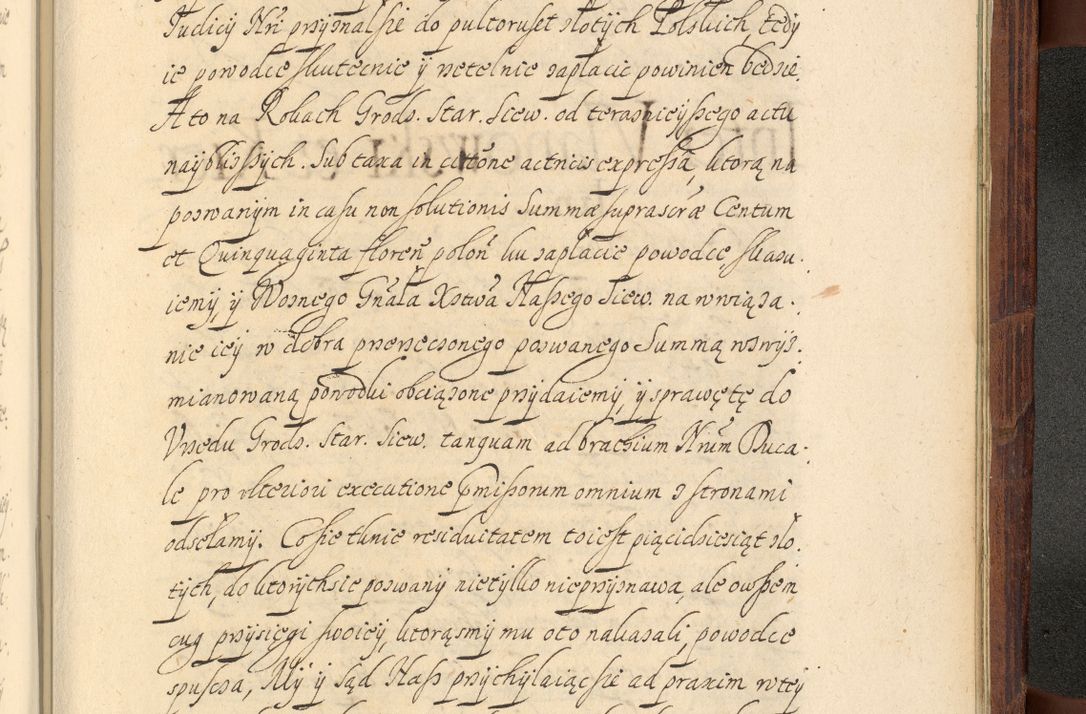 Iudicij Nri przyznal sie do pultoruset złotych Polskich, tedy
ie powodce skutecnie y rzetelnie zapłacic powinien będzie
A to na Rokach Grodz. Star. Siew. od teraznieyszego actu
naybliszszych. Sub taxa in citñe actricis expressa, ktorą na
pozwanym in casu non solutionis Summæ suprascræ Centum
et Quinquaginta floreñ poloñ ku zapłacie powodce, skazu.
iemy, y Woznego Gnála Xstwá Naszego Siew. na wwiąza.
nie iey w dobra przerzeczonego pozwanego Summą wzwyż.
mianowaną powodki obciązone przydaiemy, y sprawę tę do
Vrzedu Grodz. Star. Siew. tanquam ad brachium Nrum Duca.
le pro vlteriori executione pmissorum omnium z stronami
odsełamy. Co sie tknie residuitatem to iest piącidziesiąt zło.
tych, do ktorych sie pozwany nietylko nieprzyznawa, ale owszem
cug przysięgi swoiey, ktorąsmy mu oto nakazali, powodce
spuscza, My y Sąd Nasz przychylaiąc sie ad praxim w tey